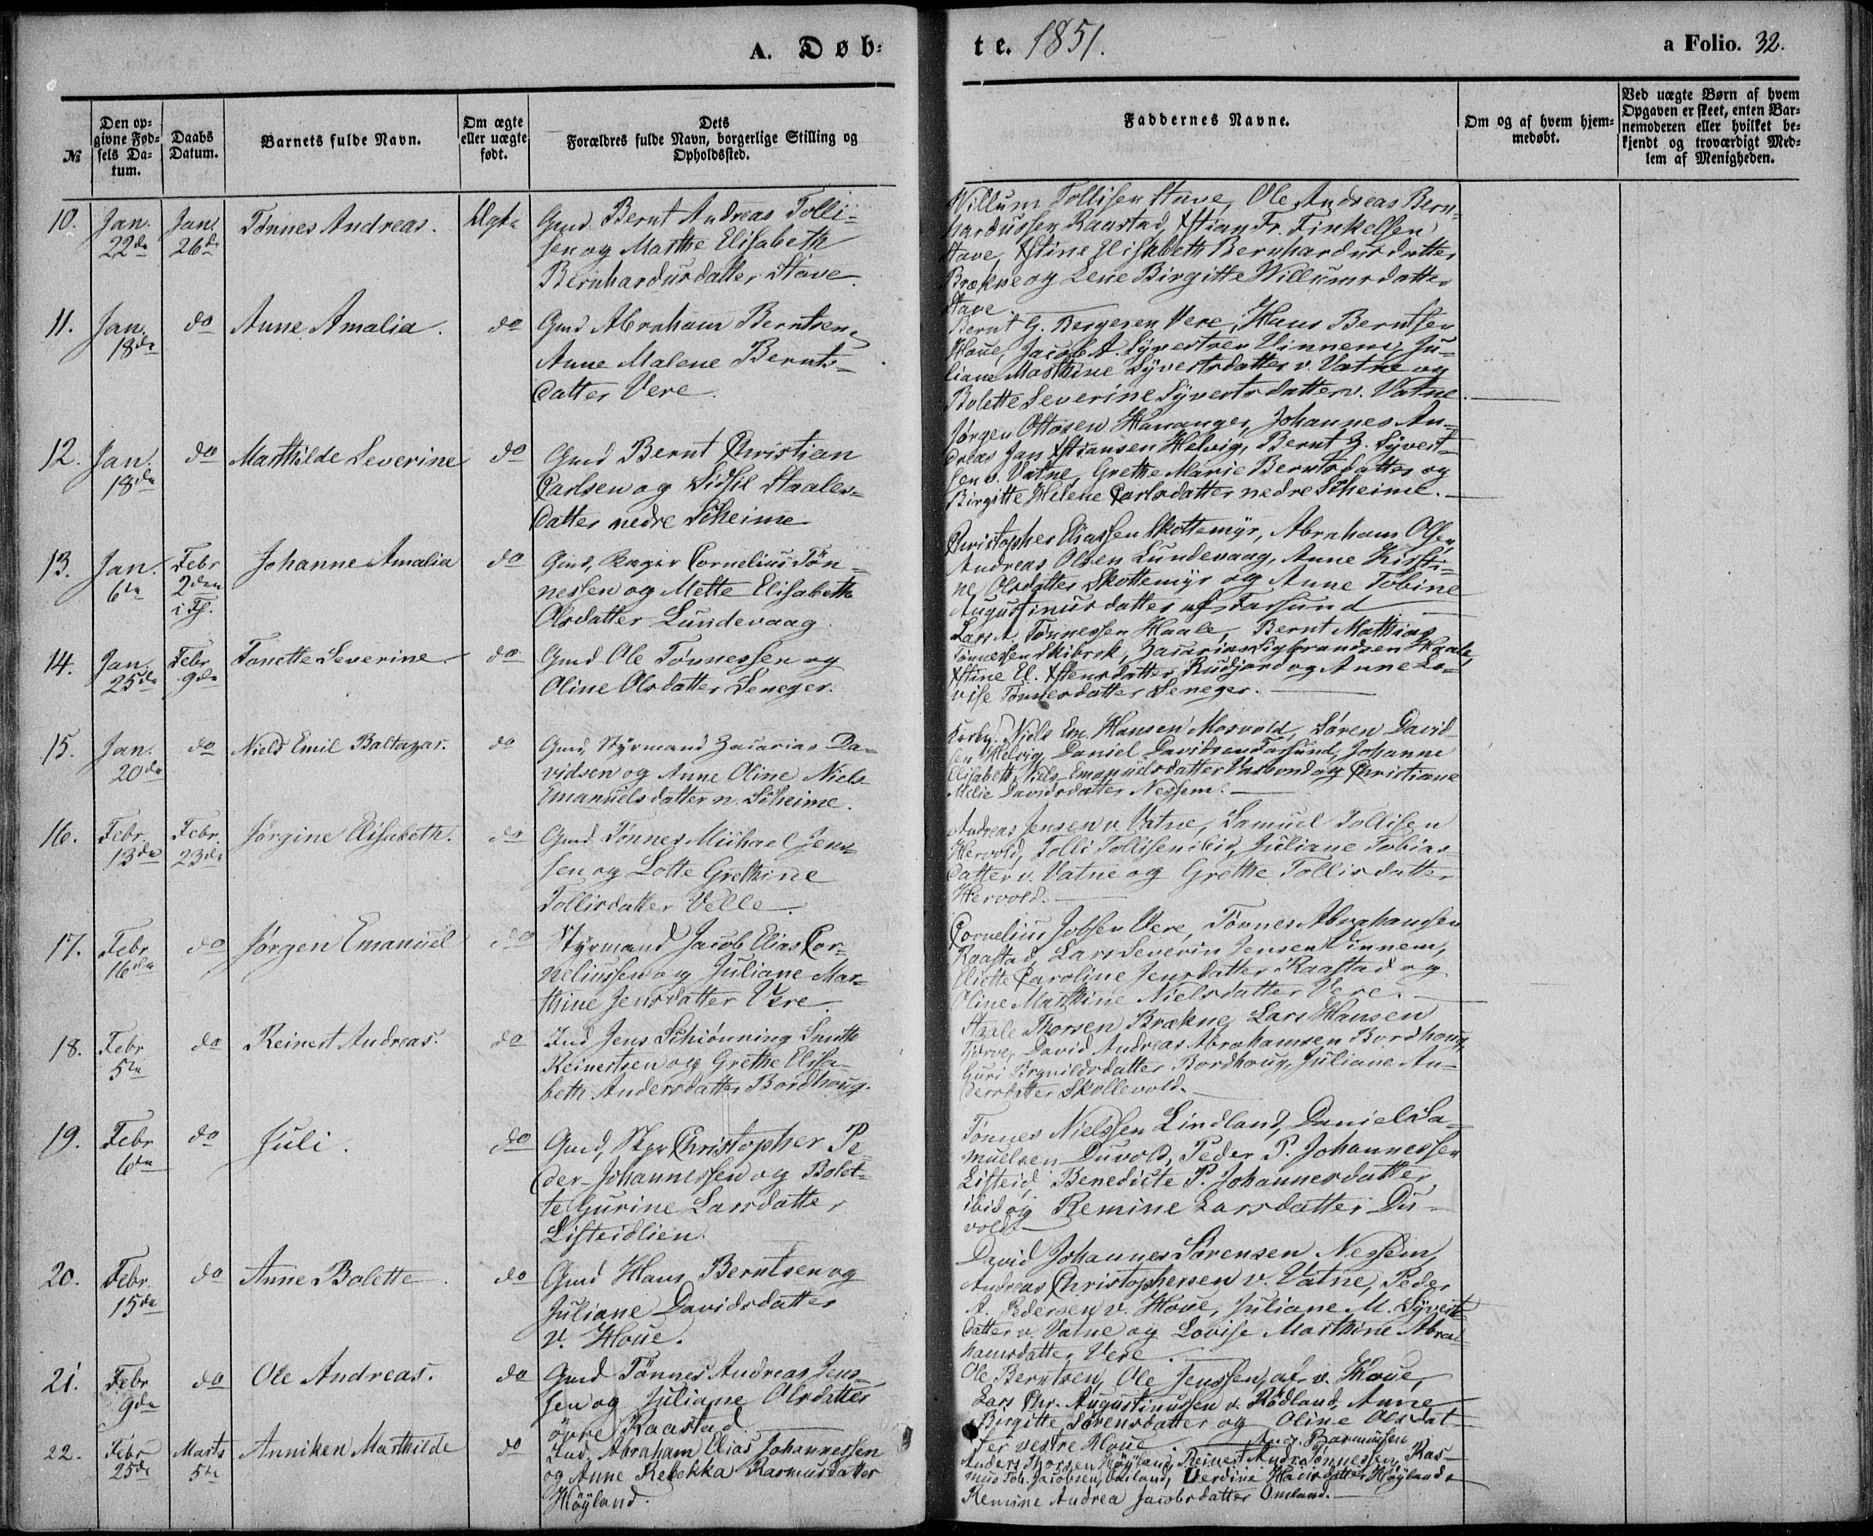 A. Døb-
te. 1851.
a Folio. 32.
№
Den op-
givne Fød-
sels Da-
tum.
Daabs
Datum.
Barnets fulde Navn.
Om ægte
eller uægte
født.
Dets
Forældres fulde Navn, borgerlige Stilling og
Opholdssted.
Faddernes Navne.
Om og af hvem hjem-
medøbt.
Ved uægte Børn af hvem
Opgaven er skeet, enten Bar-
nemoderen eller hvilket be-
kjendt og troværdigt Med-
lem af Menigheden.
10. Jan. 22de Jan. 26de Tønnes Andreas. Ægte
Gmd Bernt Andreas Tolli-
sen og Marthe Elisabeth
Bernhardusdatter Stave.
Willum Tollisen Stave, Ole Andreas Bern-
hardussen Raastad, Xstian Fr. Finkelsen
Stave, Xstine Elisabeth Bernhardusdatter
Brækne og Lene Birgitte Willumsdatter
Stave
11. Jan. 18de do Anne Amalia. do
Gmd Abraham Berntsen
Anne Malene Bernts-
datter Vere.
Bernt G. Bergesen Vere, Hans Berntsen
Houe, Jacob A. Syvertsen Vinnem, Ju-
liane Marthine Syvertsdatter v. Vatne og
Bolette Severine Syvertsdatter v. Vatne.
12. Jan. 18de do Mathilde Severine do
Gmd Bernt Christian
Carlsen og Sidsel Staales-
datter nedre Skeime
Jørgen Ottosen Hananger, Johannes An-
dreas Jan Xstiansen Helvig, Bernt Z. Syvert-
sen v. Vatne, Grethe Marie Berntsdatter og
Birgitte Helene Carlsdatter nedre Skeime.
13. Jan. 6te Febr 2den i Fj. Johanne Amalia do
Gmd, Cornelius Tøn-
nessen og Mette Elisabeth
Olsdatter Lundevaag.
Christopher Eliassen Skottemyr, Abraham Olsen
Andreas Olsen Lundevaag, Anne Kisti-
ne Olsdatter Skottemyr og Anne Tobine
Augustinusdatter af Farsund
14. Jan. 25de Febr 9de Tanette Severine do
Gmd Ole Tønnessen og
Oline Olsdatter Seneger.
Lars A. Tønnessen Haale, Bernt Mathias
Tønnessen Skibrok, Zacarias Sigbrandsen Haale,
Xstine El. Xstensdatter Rudjord og Anne Lo-
vise Tønnesdatter Seneger.
15. Jan. 20de do Niels Emil Baltazar. do
Gmd, Styrmand Zacarias Da-
vidsen og Anne Oline Niels
Emanuelsdatter n. Skeime.
Niels Em. Hansen Mosvold, Søren David-
sen Helvig, Daniel Davidsen Farsund, Johanne
Elisabeth Niels Emanuelsdatter og Christiane
Melie Davidsdatter Nessem.
16. Febr. 13de Febr. 23de Jørgine Elisabeth. do
Gmd Tønnes Michael Jens-
sen og Lotte Grethine
Tollisdatter Velle.
Andreas Jensen v. Vatne, Samuel Tollisen
Hervold, Tolli Tollisen ibid, Juliane Tobias-
datter v. Vatne og Grethe Tollisdatter
Hervold.
17. Febr 16de do Jørgen Emanuel do
Styrmand Jacob Elias Cor-
neliussen og Juliane Mar-
thine Jensdatter Vere
Cornelius Jobsen Vere, Tønnes Abrahamsen
Raastad, Lars Severin Jensen Vinnem,
Eliette Caroline Jensdatter Raastad og
Oline Mathine Nielsdatter Vere.
18. Febr 5te do Reinert Andreas. do
Ind Jens Schiønning Smith
Reinertsen og Grethe Elisa-
beth Andersdatter Bordhoug.
Staale Thorsen Brækne, Lars Hansen
Tjørve, David Andreas Abrahamsen Bordhoug,
Guri Brynildsdatter Bordhoug, Juliane An-
dersdatter Skollevold.
19. Febr 6te do Juli. do
Gmd, Styr Christopher Pe-
der Johannessen og Bolet-
te Gurine Larsdatter,
Listeidlien
Tønnes Nielssen Lindland, Daniel Sa-
muelsen Duvold, Peder P. Johannessen
Listeid, Benedicte P. Johannesdatter
ibid og Remine Larsdatter Du-
vold.
20. Febr. 15de do Anne Bolette do
Gmd Hans Berntsen og
Juliane Davidsdatter
v. Houe.
David Johannes Sørensen Nessem,
Andreas Christophersen v. Vatne, Peder
A. Pedersen v. Houe, Juliane M. Syverts-
datter v. Vatne og Lovise Marthine Abra-
hamsdatter Vere.
21. Febr 9de do Ole Andreas. do
Gmd Tønnes Andreas Jens-
sen og Juliane Olsdatter
øvre Raastad.
Ole Berntsen, Ole Jenssen, af v. Houe,
Lars Chr. Augustinussen v. Rødland, Anne
Birgitte Sørensdatter og Oline Olsdat-
ter vestre Houe
22. Febr 25de Marts 5te Anniken Marthilde do
Ind, Abraham Elias Johannessen
og Anne Rebekka Rasmusdatter
Høyland.
Anders Thorsen Høyland, Reinert Andr. Tønnessen, Ras-
mus Tob. Jacobsen Omland, Verdine Hansdatter Høyland
Remine Andrea Jacobsdatter Omland.